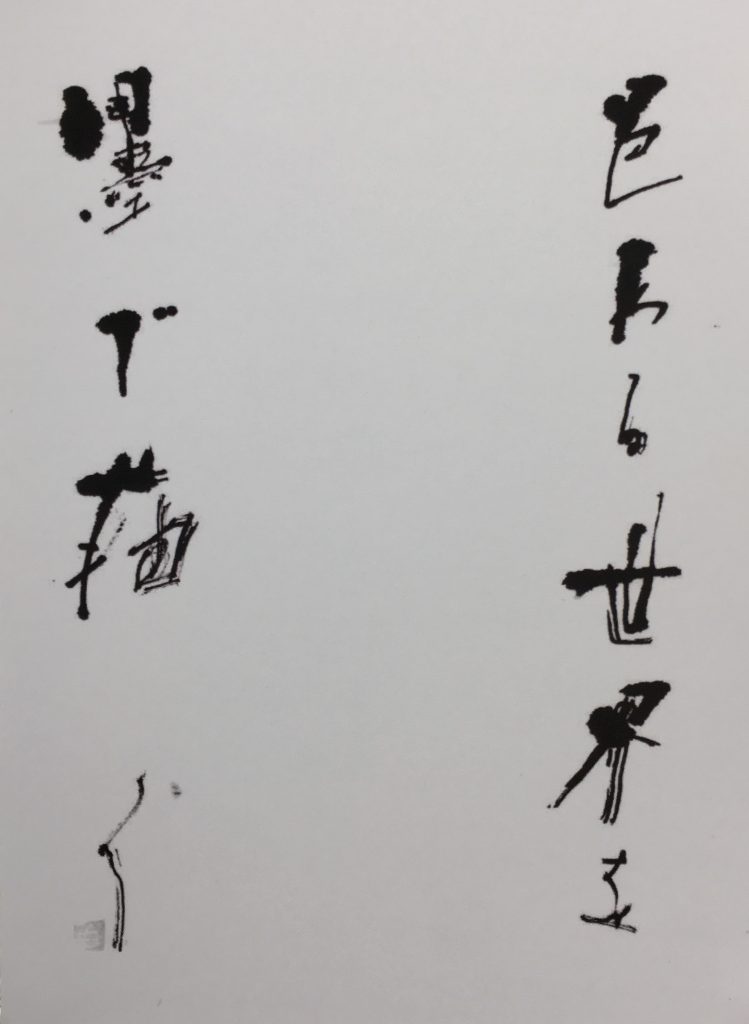 色ある世界を
墨で描く